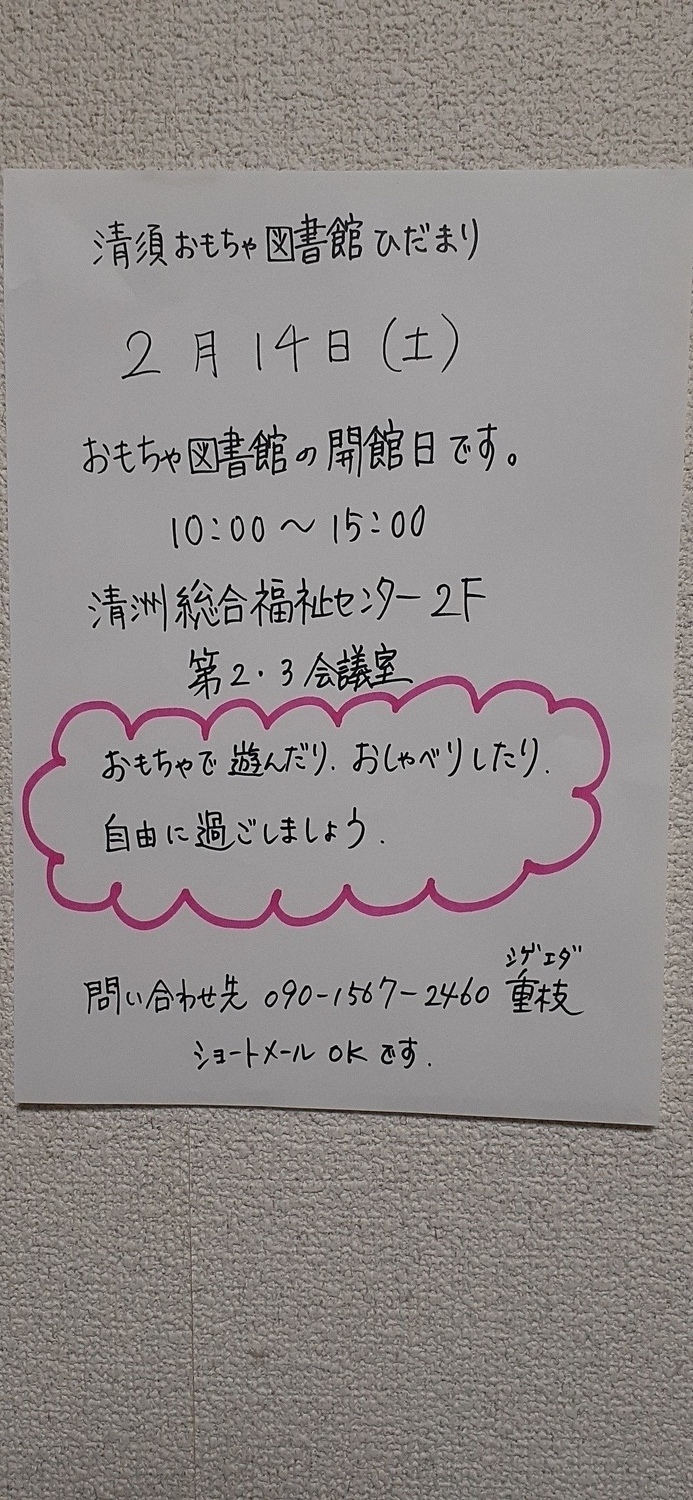 清須おもちゃ図書館ひだまり
2月14日(土)
おもちゃ図書館の開館日です。
10:00〜15:00
清洲総合福祉センター2F
第2・3会議室
おもちゃで遊んだり.おしゃべりしたり.
自由に過ごしましょう.
シゲエダ
問い合わせ先 090-1567-2460 重枝
ショートメール OKです.